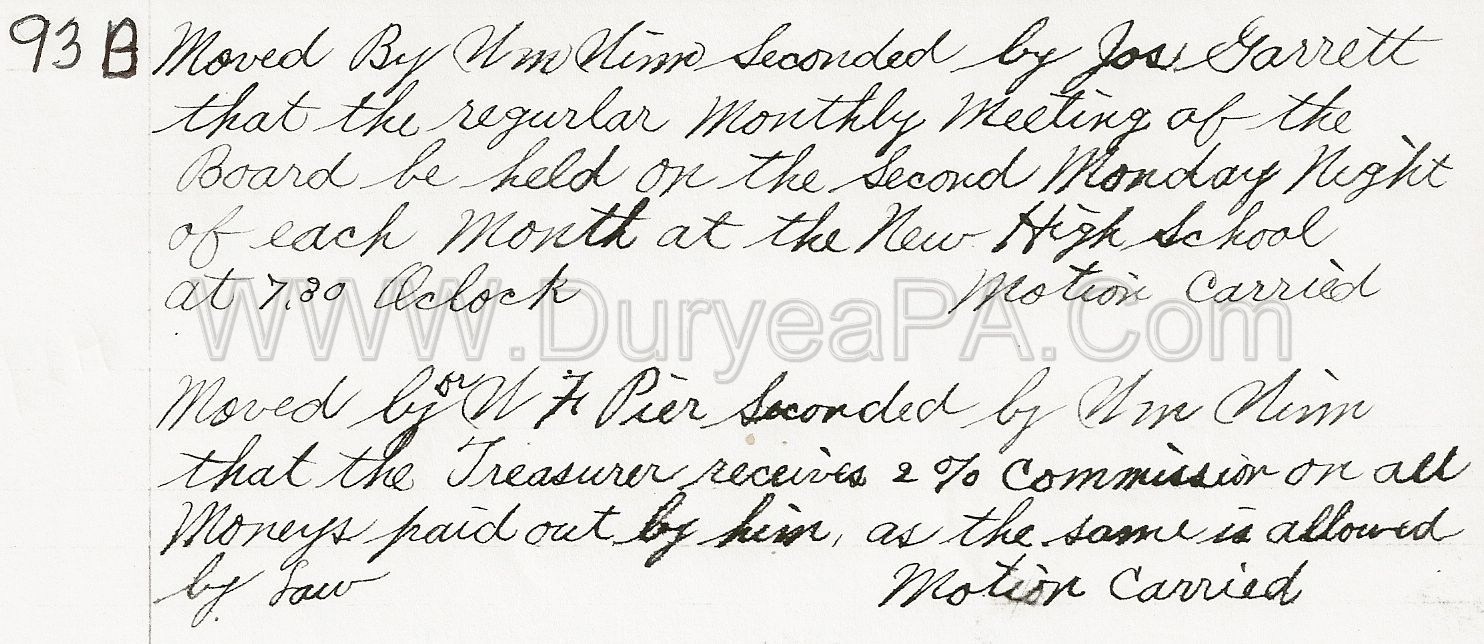 93 B Moved By Wm Winn Seconded by Jos. Garrett
that the regurlar Monthly Meeting of the
Board be held on the Second Monday Night
of each Month at the New High School
at 7.30 Oclock Motion Carried
WWW.DuryeaPA.Com
Moved by Dr W F Pier Seconded by Wm Winn
that the Treasurer receives 2 % Commission on all
Moneys paid out by him, as the same is allowed
by Law Motion Carried